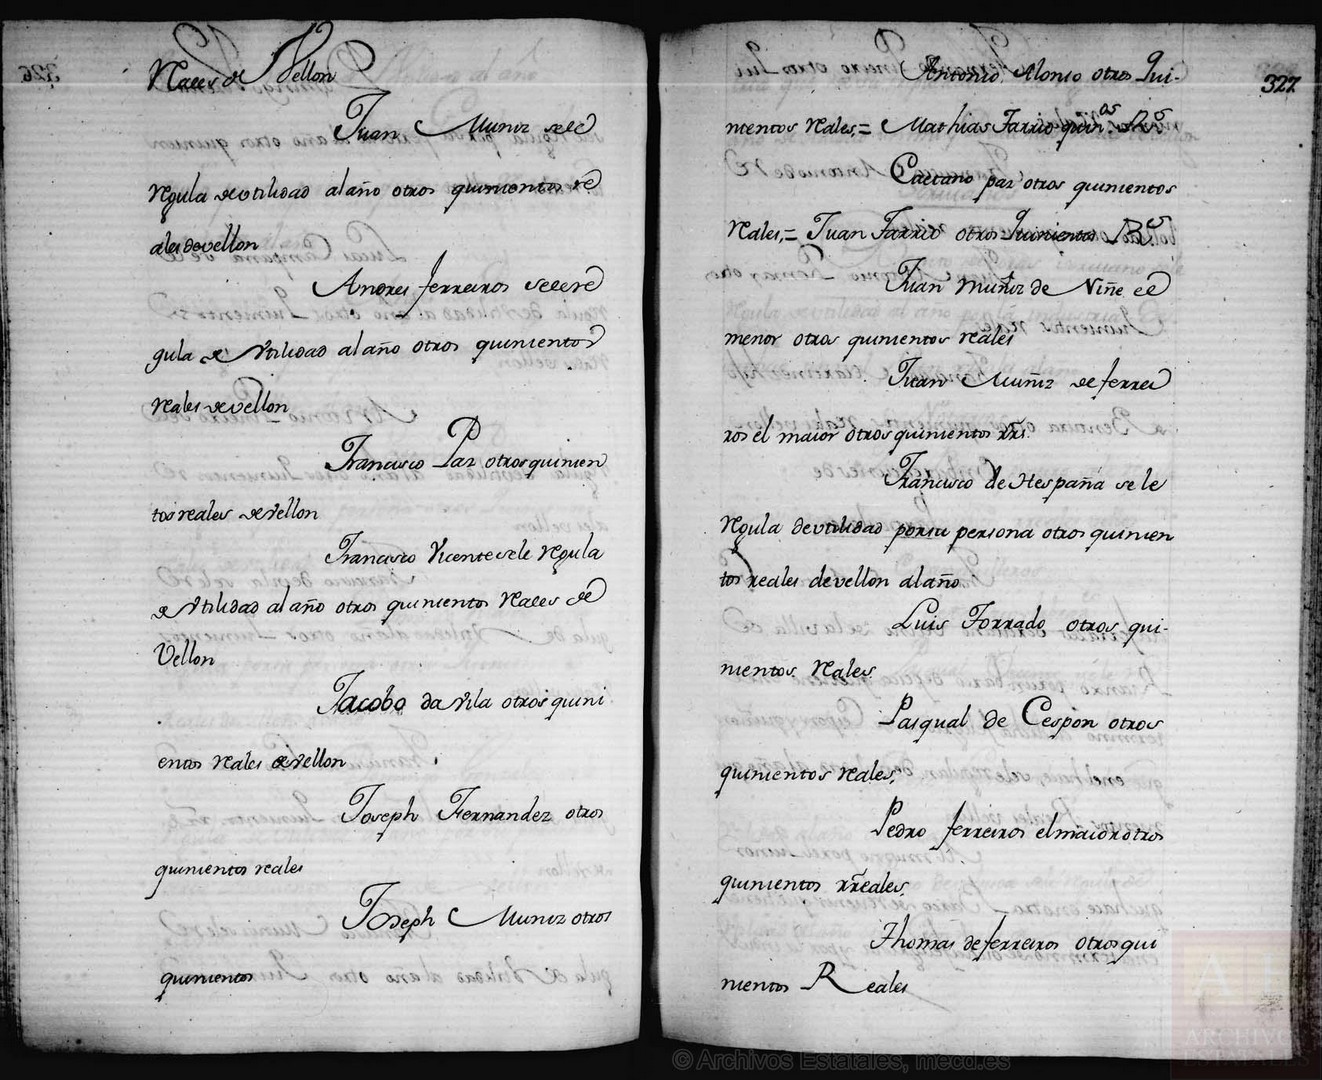 Reales de Vellon
Juan Muniz sele
Regula de utilidad al año otros quinientos re
ales de vellon
Andres ferreiros sele re
gula de Utilidad al año otros quinientos
Reales de vellon
Francisco Paz otros quinien
tos reales de Vellon
Francisco Vicente sele Regula
de Utilidad al año otros quinientos Reales de
Vellon
Jacobo da Vila otros quini
entos reales de Vellon
Joseph Fernandez otros
quinientos reales
Joseph Muniz otros
quinientos
327
Antonio Alonso otros Qui-
nientos Reales = Mathias Farrio quin.os R.s
Caetano paz otros quinientos
Reales = Juan Farrio otros Quinientos R.s
Juan Muñiz de Niñe el
menor otros quinientos reales
Juan Muñiz de ferrei
ros el maior otros quinientos rrs.
Francisco de Hespaña se le
Regula de utilidad por su persona otros quinien
tos reales de vellon al año.
Luis Forrado otros qui-
nientos Reales
Pasqual de Cespon otros
quinientos reales.
Pedro ferreiros el maior otros
quinientos rreales.
Thomas de ferreiros otros qui
nientos Reales
© Archivos Estatales, mecd.es
ARCHIVOS
ESTATALES